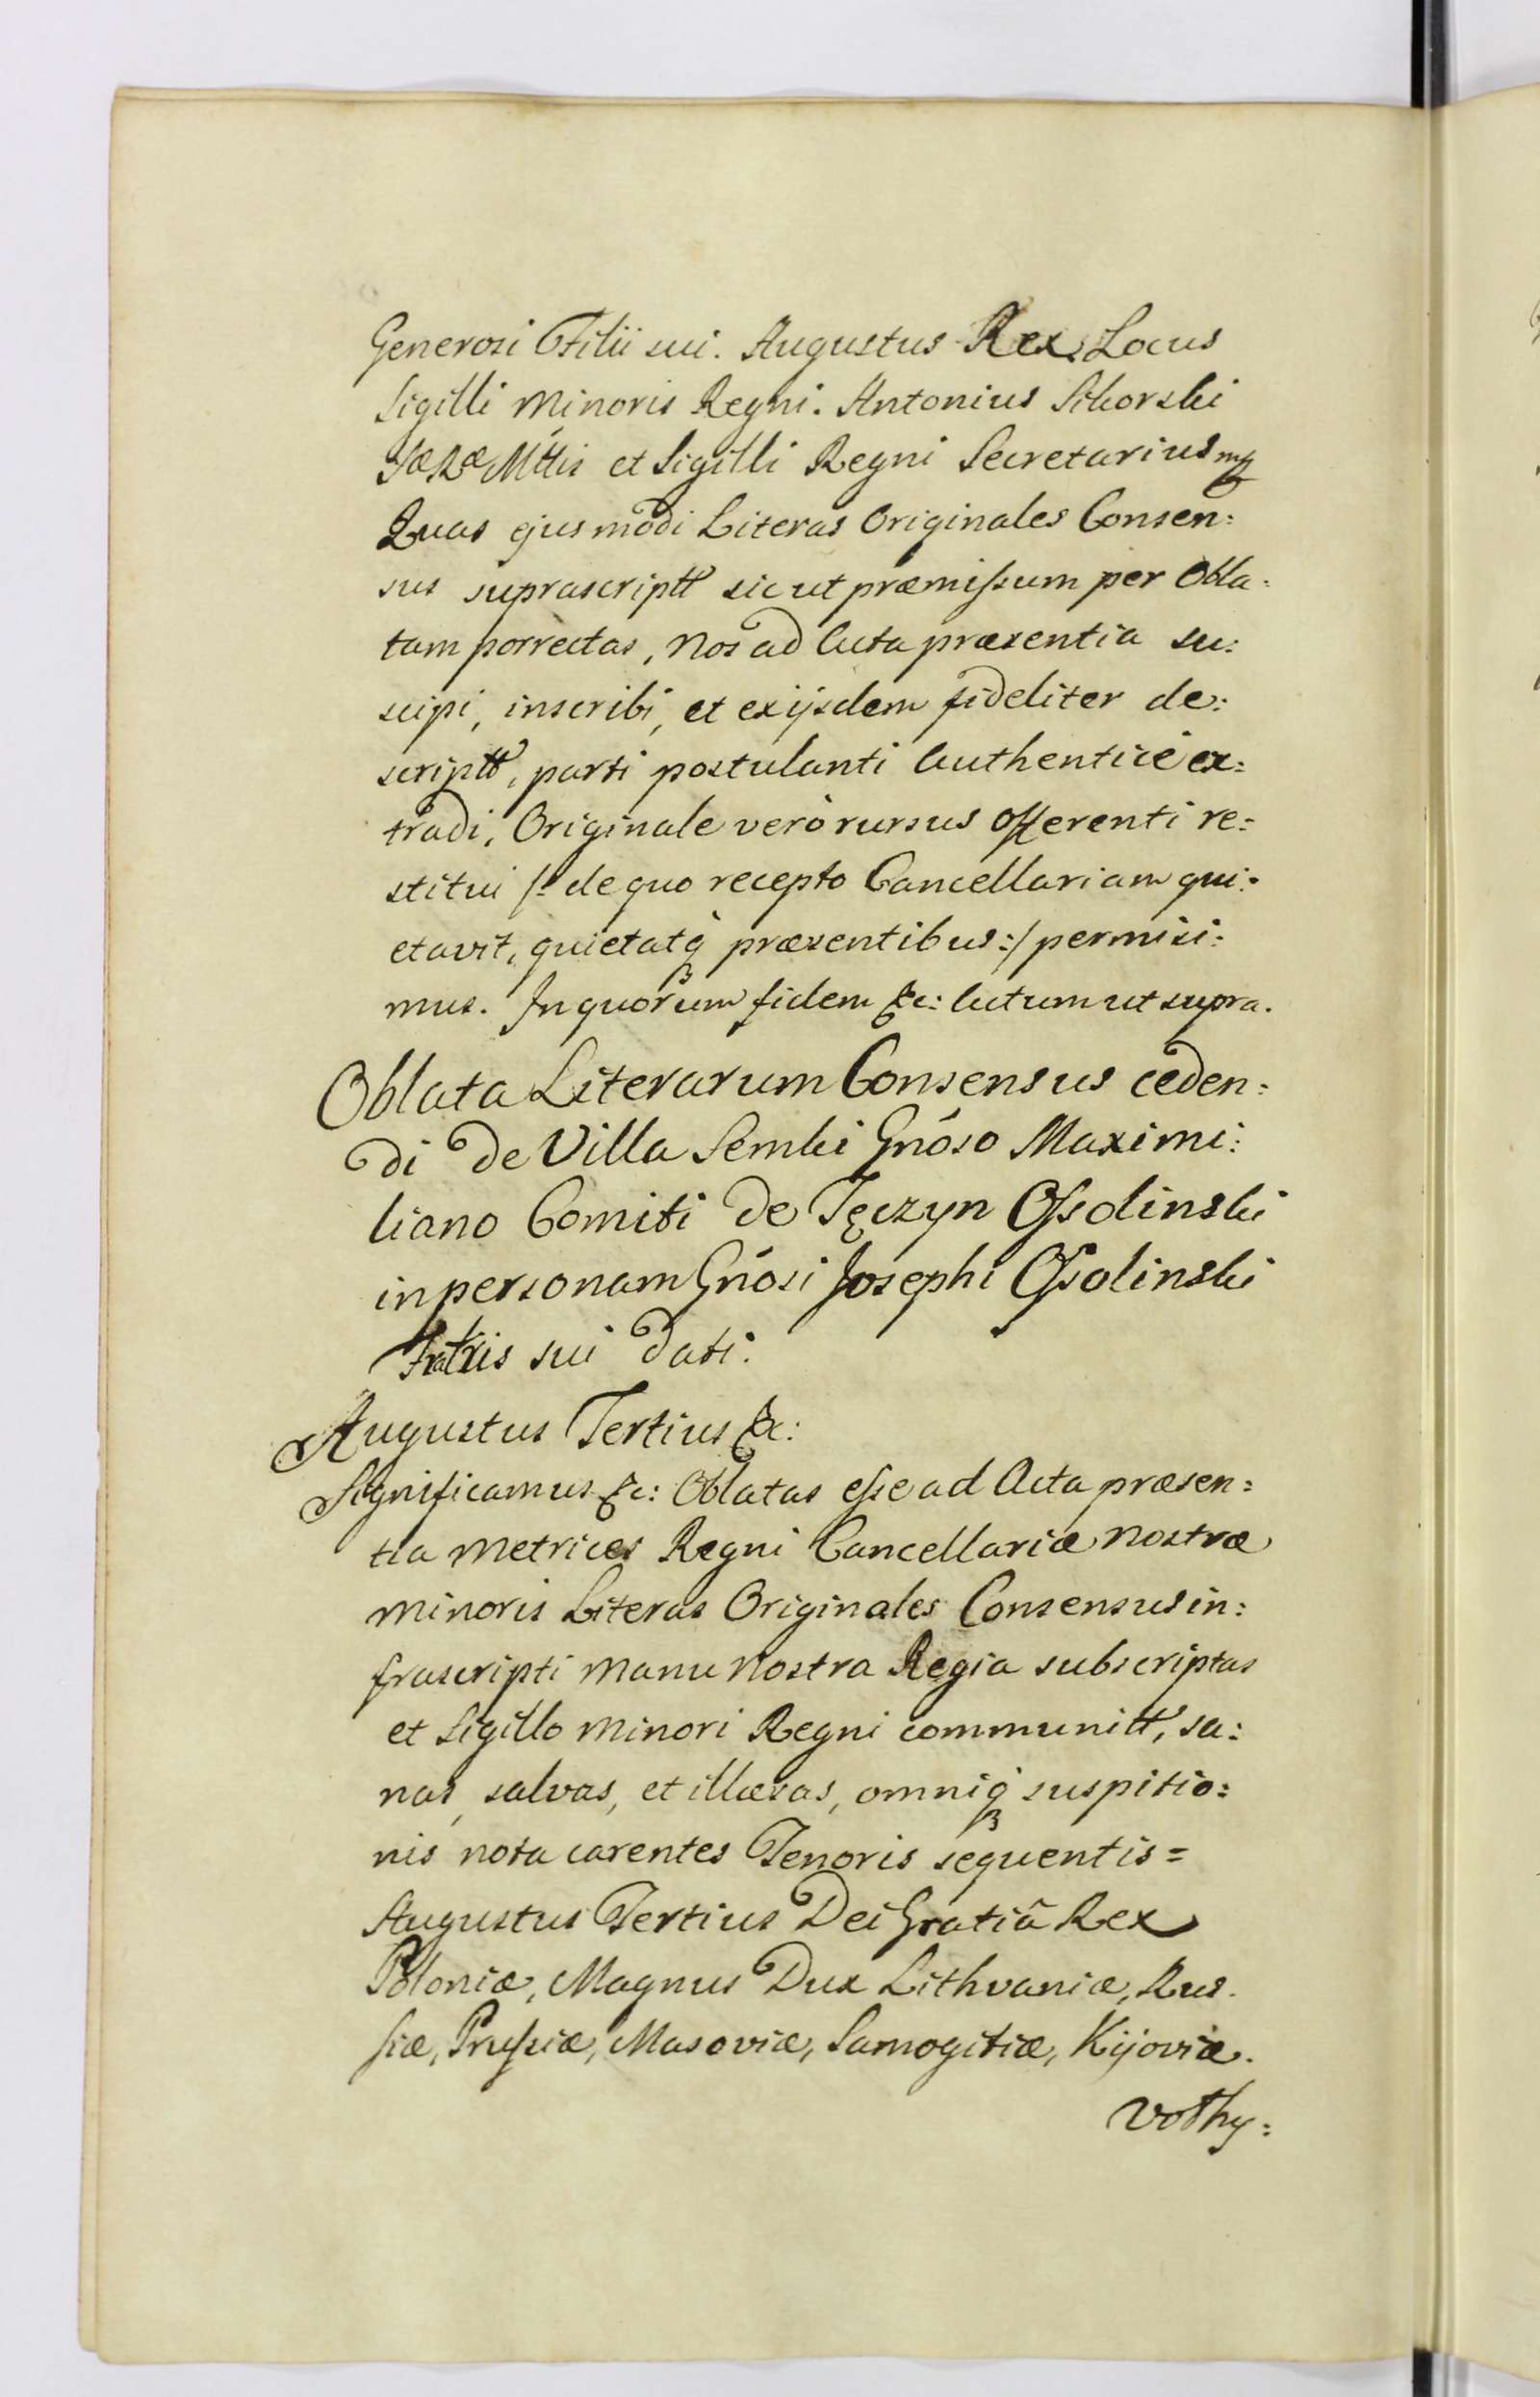 Generosi Filii sui. Augustus Rex, Locus
Sigilli Minoris Regni. Antonius Sikorski
SæRæMttis et Sigilli Regni Secretarius mp
Quas ejusmodi Literas Originales Consen:
sus suprascriptt sicut præmissum per Obla:
tam porrectas, Nos ad Acta præsentia su:
scipi, inscribi, et ex ijsdem fideliter de:
scriptt, parti postulanti Authenticè ex:
tradi, Originale verò rursus Offerenti re:
stitui /: de quo recepto Cancellariam qui:
etavit, quietatq præsentibus :/ permisi:
mus. In quorum fidem &c: Actum ut supra.
Oblata Literarum Consensus ceden:
di de Villa Sembi Gnóso Maximi:
liano Comiti de Tęczyn Ossolinski
in personam Gnósi Josephi Ossolinski
Fratris sui dati.
Augustus Tertius &c:
Significamus &c: Oblatas esse ad Acta præsen:
tia Metrices Regni Cancellariæ Nostræ
Minoris Literas Originales Consensus in:
frascripti Manu Nostra Regia subscriptas
et Sigillo Minori Regni communitt, sa:
nas, salvas, et illæsas, omniq suspitio:
nis nota carentes Tenoris sequentis =
Augustus Tertius Dei Gratiâ Rex
Poloniæ, Magnus Dux Lithvaniæ, Rus.
siæ, Prussiæ, Masoviæ, Samogitiæ, Kijoviæ.
Volhy: